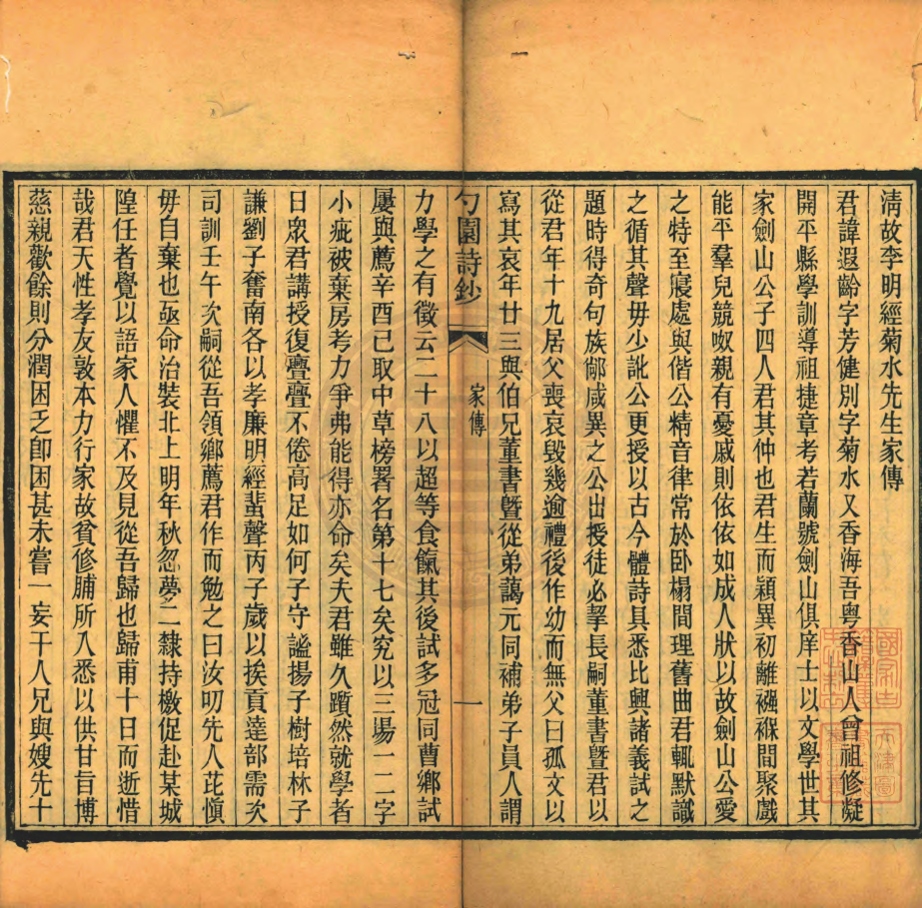 清故李明經菊水先生家傳
君諱遐齡字芳健別字菊水又香海吾粤香山人曾祖修凝
開平縣學訓導祖捷章考若蘭號劍山俱庠士以文學世其
家劍山公子四人君其仲也君生而穎異初離襁褓間聚戲
能平羣兒競呶親有憂戚則依依如成人狀以故劍山公愛
之特至寢處與偕公精音律常於卧榻間理舊曲君輒默識
之循其聲毋少訛公更授以古今體詩具悉比興諸義試之
題時得奇句族鄰咸異之公出授徒必挈長嗣董書暨君以
從君年十九居父喪哀毀幾逾禮後作幼而無父曰孤文以
寫其哀年廿三與伯兄董書暨從弟藹元同補弟子員人謂
勺園詩鈔 家傳 一
力學之有徵云二十八以超等食餼其後試多冠同曹鄉試
屢與薦辛酉已取中草榜署名第十七矣究以三場一二字
小疵被棄房考力爭弗能得亦命矣夫君雖久躓然就學者
日眾君講授復亹亹不倦高足如何子守謐揚子樹培林子
謙劉子奮南各以孝廉明經蜚聲丙子歲以挨貢達部需次
司訓壬午次嗣從吾領鄉薦君作而勉之曰汝叨先人芘愼
毋自棄也亟命治裝北上明年秋忽夢二隸持檄促赴某城
隍任者覺以語家人懼不及見從吾歸也歸甫十日而逝惜
哉君天性孝友敦本力行家故貧修脯所入悉以供甘旨博
慈親歡餘則分潤困乏卽困甚未嘗一妄干人兄與嫂先十